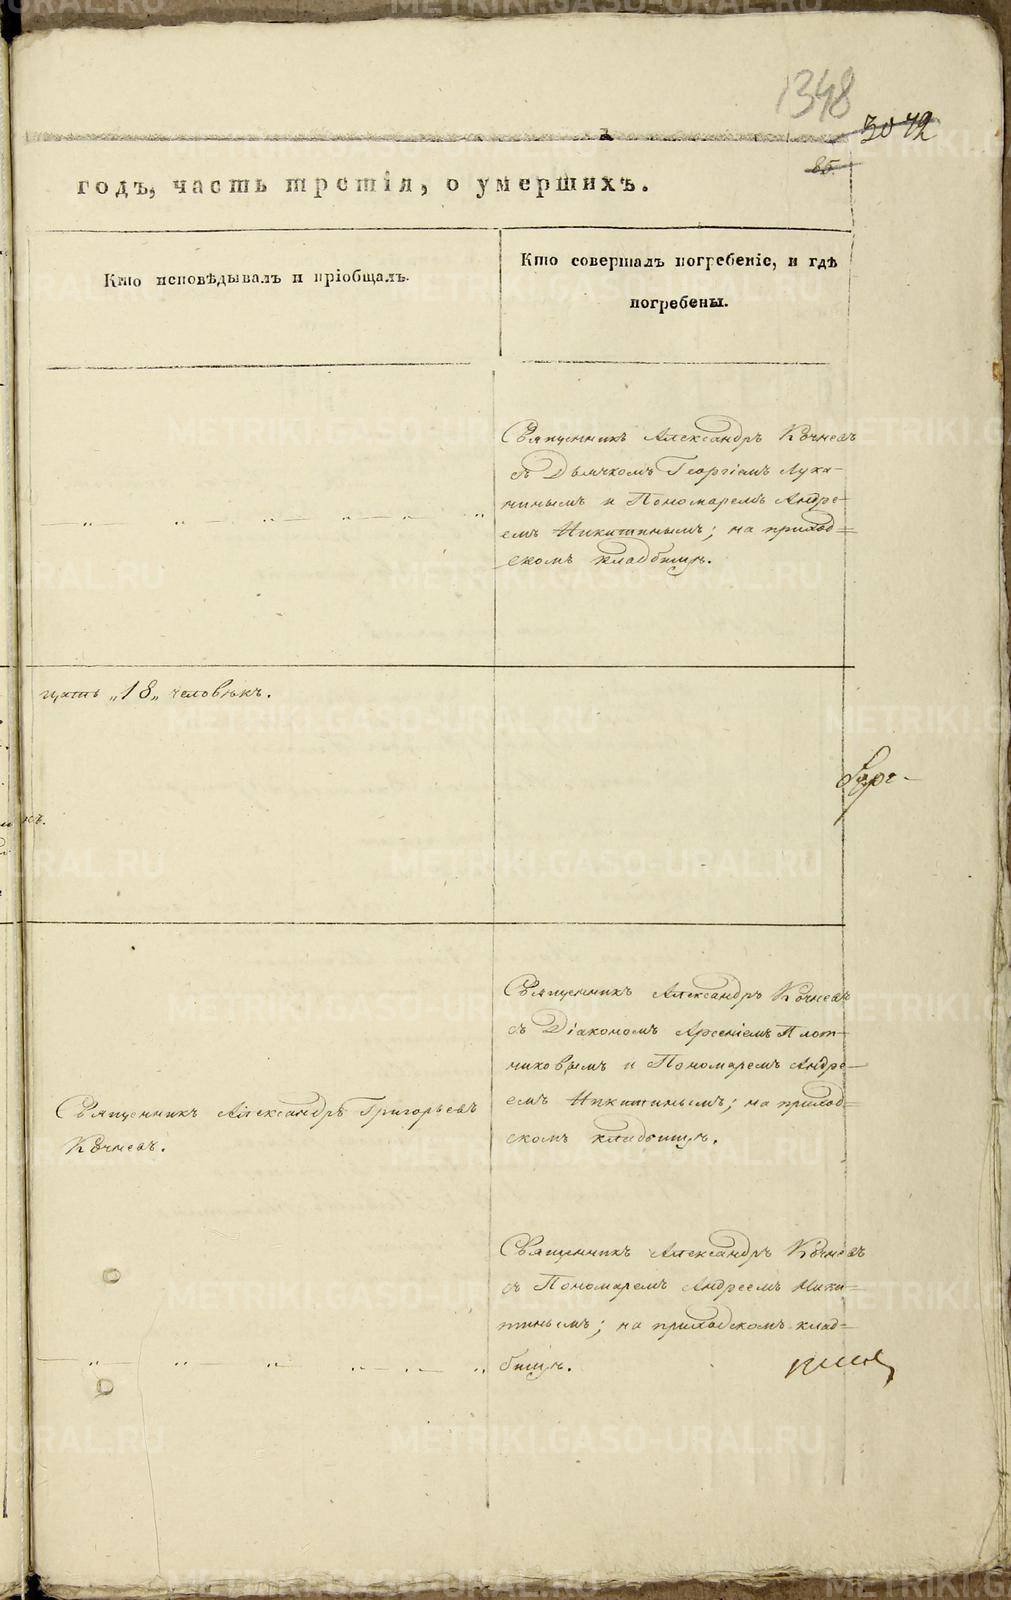 1348
3042
85.
годъ, часть третія, о умершихъ.
Кто исповѣдывалъ и пріобщалъ.
Кто совершалъ погребеніе, и гдѣ
погребены.
Священникъ Александръ Кочневъ
съ Дьячкомъ Георгіемъ Лука-
нинымъ и Пономаремъ Андре-
емъ Никитинымъ; на приход=
скомъ кладбищѣ.
щать „18„ человѣкъ.
Священникъ Александръ Кочневъ
съ Діакономъ Арсеніемъ Плот-
никовымъ и Пономаремъ Андре-
емъ Никитинымъ; на приход=
скомъ кладбищѣ.
Священникъ Александръ Григорьевъ
Кочневъ.
Священникъ Александръ Кочневъ
съ Пономаремъ Андреемъ Ники=
тинымъ; на приходскомъ клад=
бищѣ.
METRIKI.GASO-URAL.RU